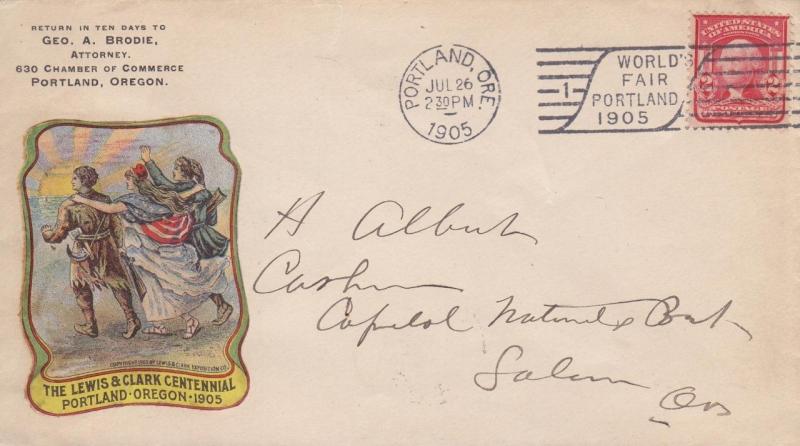 RETURN IN TEN DAYS TO
GEO. A. BRODIE,
ATTORNEY.
630 CHAMBER OF COMMERCE
PORTLAND, OREGON.
PORTLAND, ORE.
JUL 26
2 30 PM
1905
1
WORLD'S
FAIR
PORTLAND
1905
UNITED STATES
OF AMERICA
2 2
POSTAGE
H Albert
Cashier
Capitol National Bank
Salem
Ore
COPYRIGHT 1903 BY LEWIS & CLARK EXPOSITION CO.
THE LEWIS & CLARK CENTENNIAL
PORTLAND · OREGON · 1905